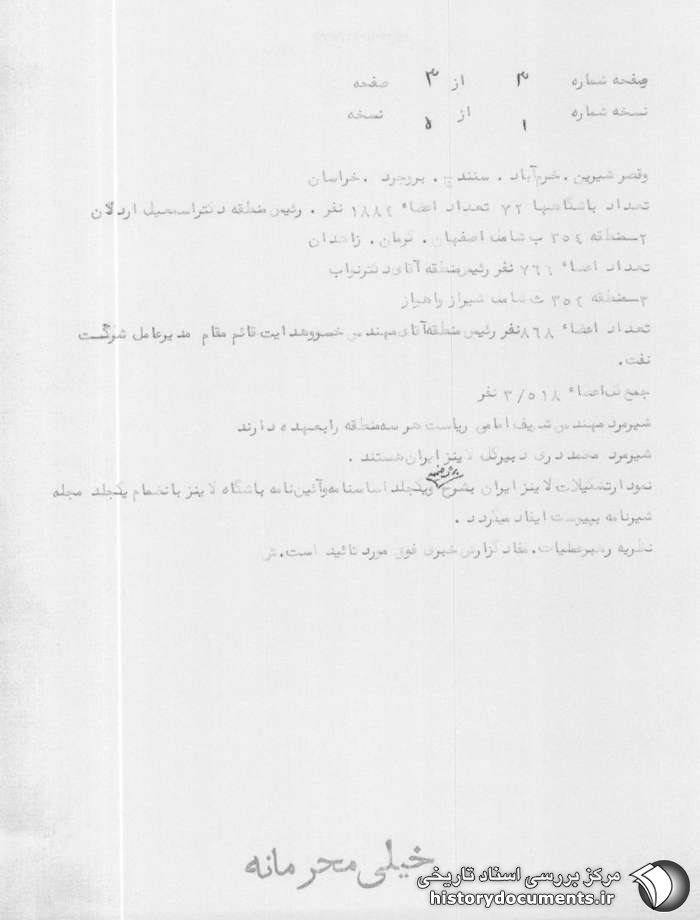 صفحه شماره ۳ از ۳ صفحه
نسخه شماره ۱ از ۵ نسخه
وقصر شیرین . خرم‌آباد . سنندج . بروجرد . خراسان
تعداد باشگاهها ۷۲ تعداد اعضاء ۱۸۸۴ نفر . رئیس منطقه دکتر اسمعیل اردلان
۲ـ منطقه ۳۵۴ ب شامل اصفهان . کرمان . زاهدان
تعداد اعضاء ۷۶۶ نفر رئیس منطقه آقای دکتر نواب
۳ـ منطقه ۳۵۴ ث شامل شیراز واهواز
تعداد اعضاء ۸۶۸ نفر رئیس منطقه آقای مهندس خسرو هدایت قائم مقام مدیرعامل شرکت
نفت.
جمع کل اعضاء ۳/۵۱۸ نفر
شیرمرد مهندس شریف امامی ریاست هر سه منطقه را بعهده دارند
شیرمرد محمد دری دبیرکل لاینز ایران هستند .
نمودار تشکیلات لاینز ایران بشرح ویکجلد اساسنامه وآئین‌نامه باشگاه لاینز بانضمام یکجلد مجله
شیرنامه بپیوست ایفاد میگردد .
نظریه رهبرعملیات. مفاد گزارش خبری فوق مورد تائید است.ش
خیلی محرمانه
مرکز بررسی اسناد تاریخی
historydocuments.ir